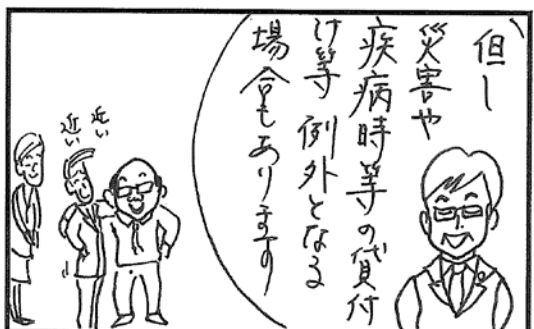 但し
災害や
疾病時等の貸付
け等 例外となる
場合もあります
近い
近い